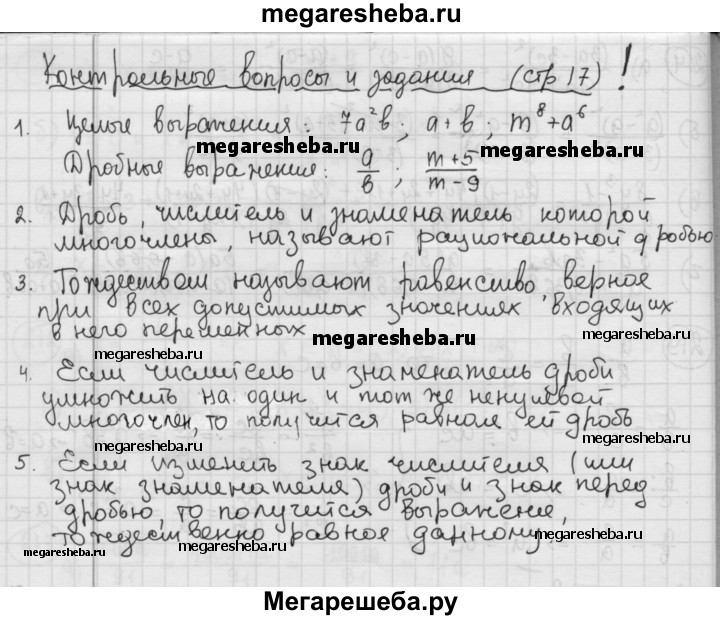 megaresheba.ru
Контрольные вопросы и задания (стр 17) !
1. Целые выражения: 7a²b; a+b; m⁸+a⁶
megaresheba.ru megaresheba.ru
Дробные выражения: a/b; m+5/m-9
2. Дробь, числитель и знаменатель которой
многочлены, называют рациональной дробью.
3. Тождеством называют равенство верное
при всех допустимых значениях входящих
в него переменных
megaresheba.ru megaresheba.ru megaresheba.ru
4. Если числитель и знаменатель дроби
умножить на один и тот же ненулевой
многочлен, то получится равная ей дробь
megaresheba.ru megaresheba.ru
5. Если изменить знак числителя (или
знак знаменателя) дроби и знак перед
дробью, то получится выражение,
тождественно равное данному.
megaresheba.ru megaresheba.ru megaresheba.ru
Мегарешеба.ру